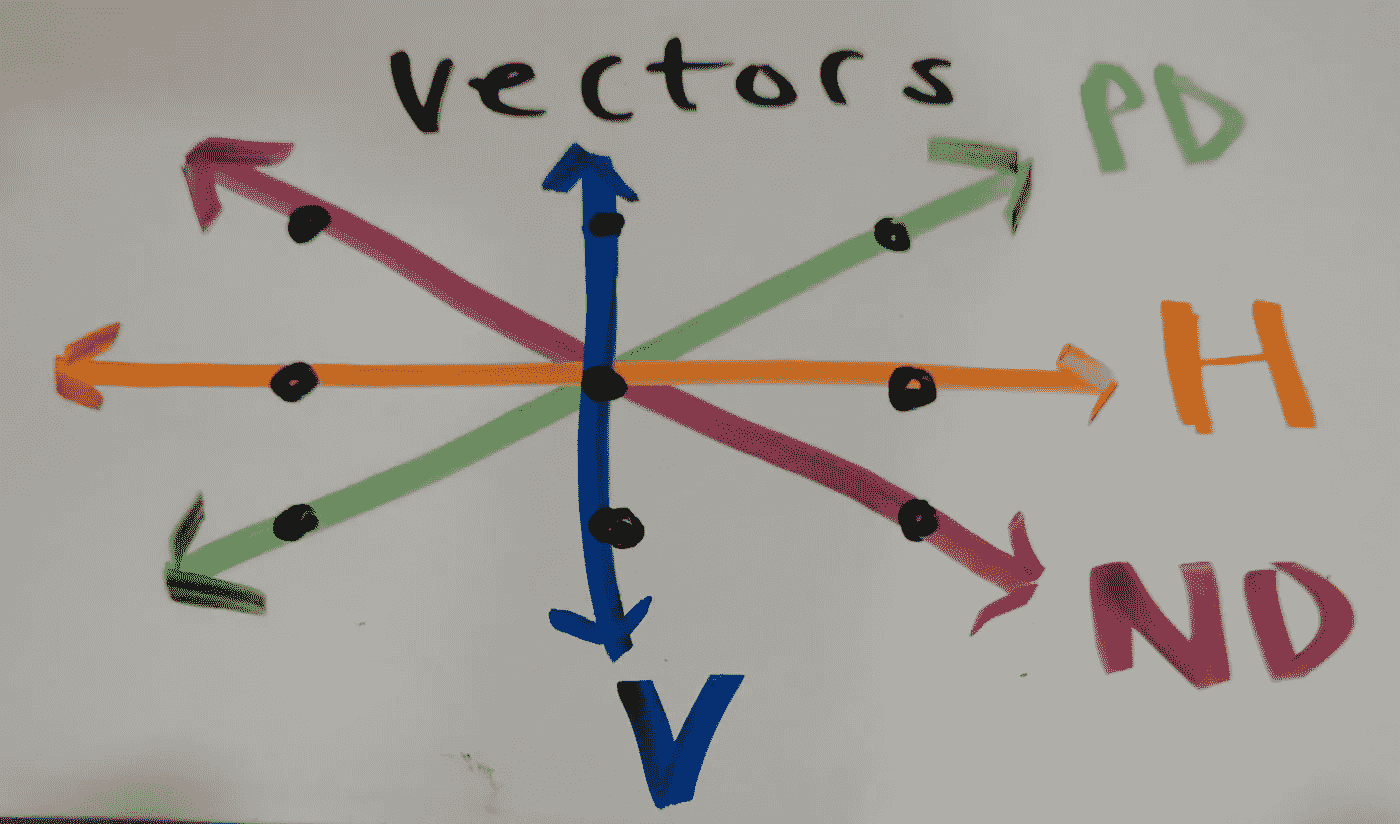 vectors
PD
H
ND
V